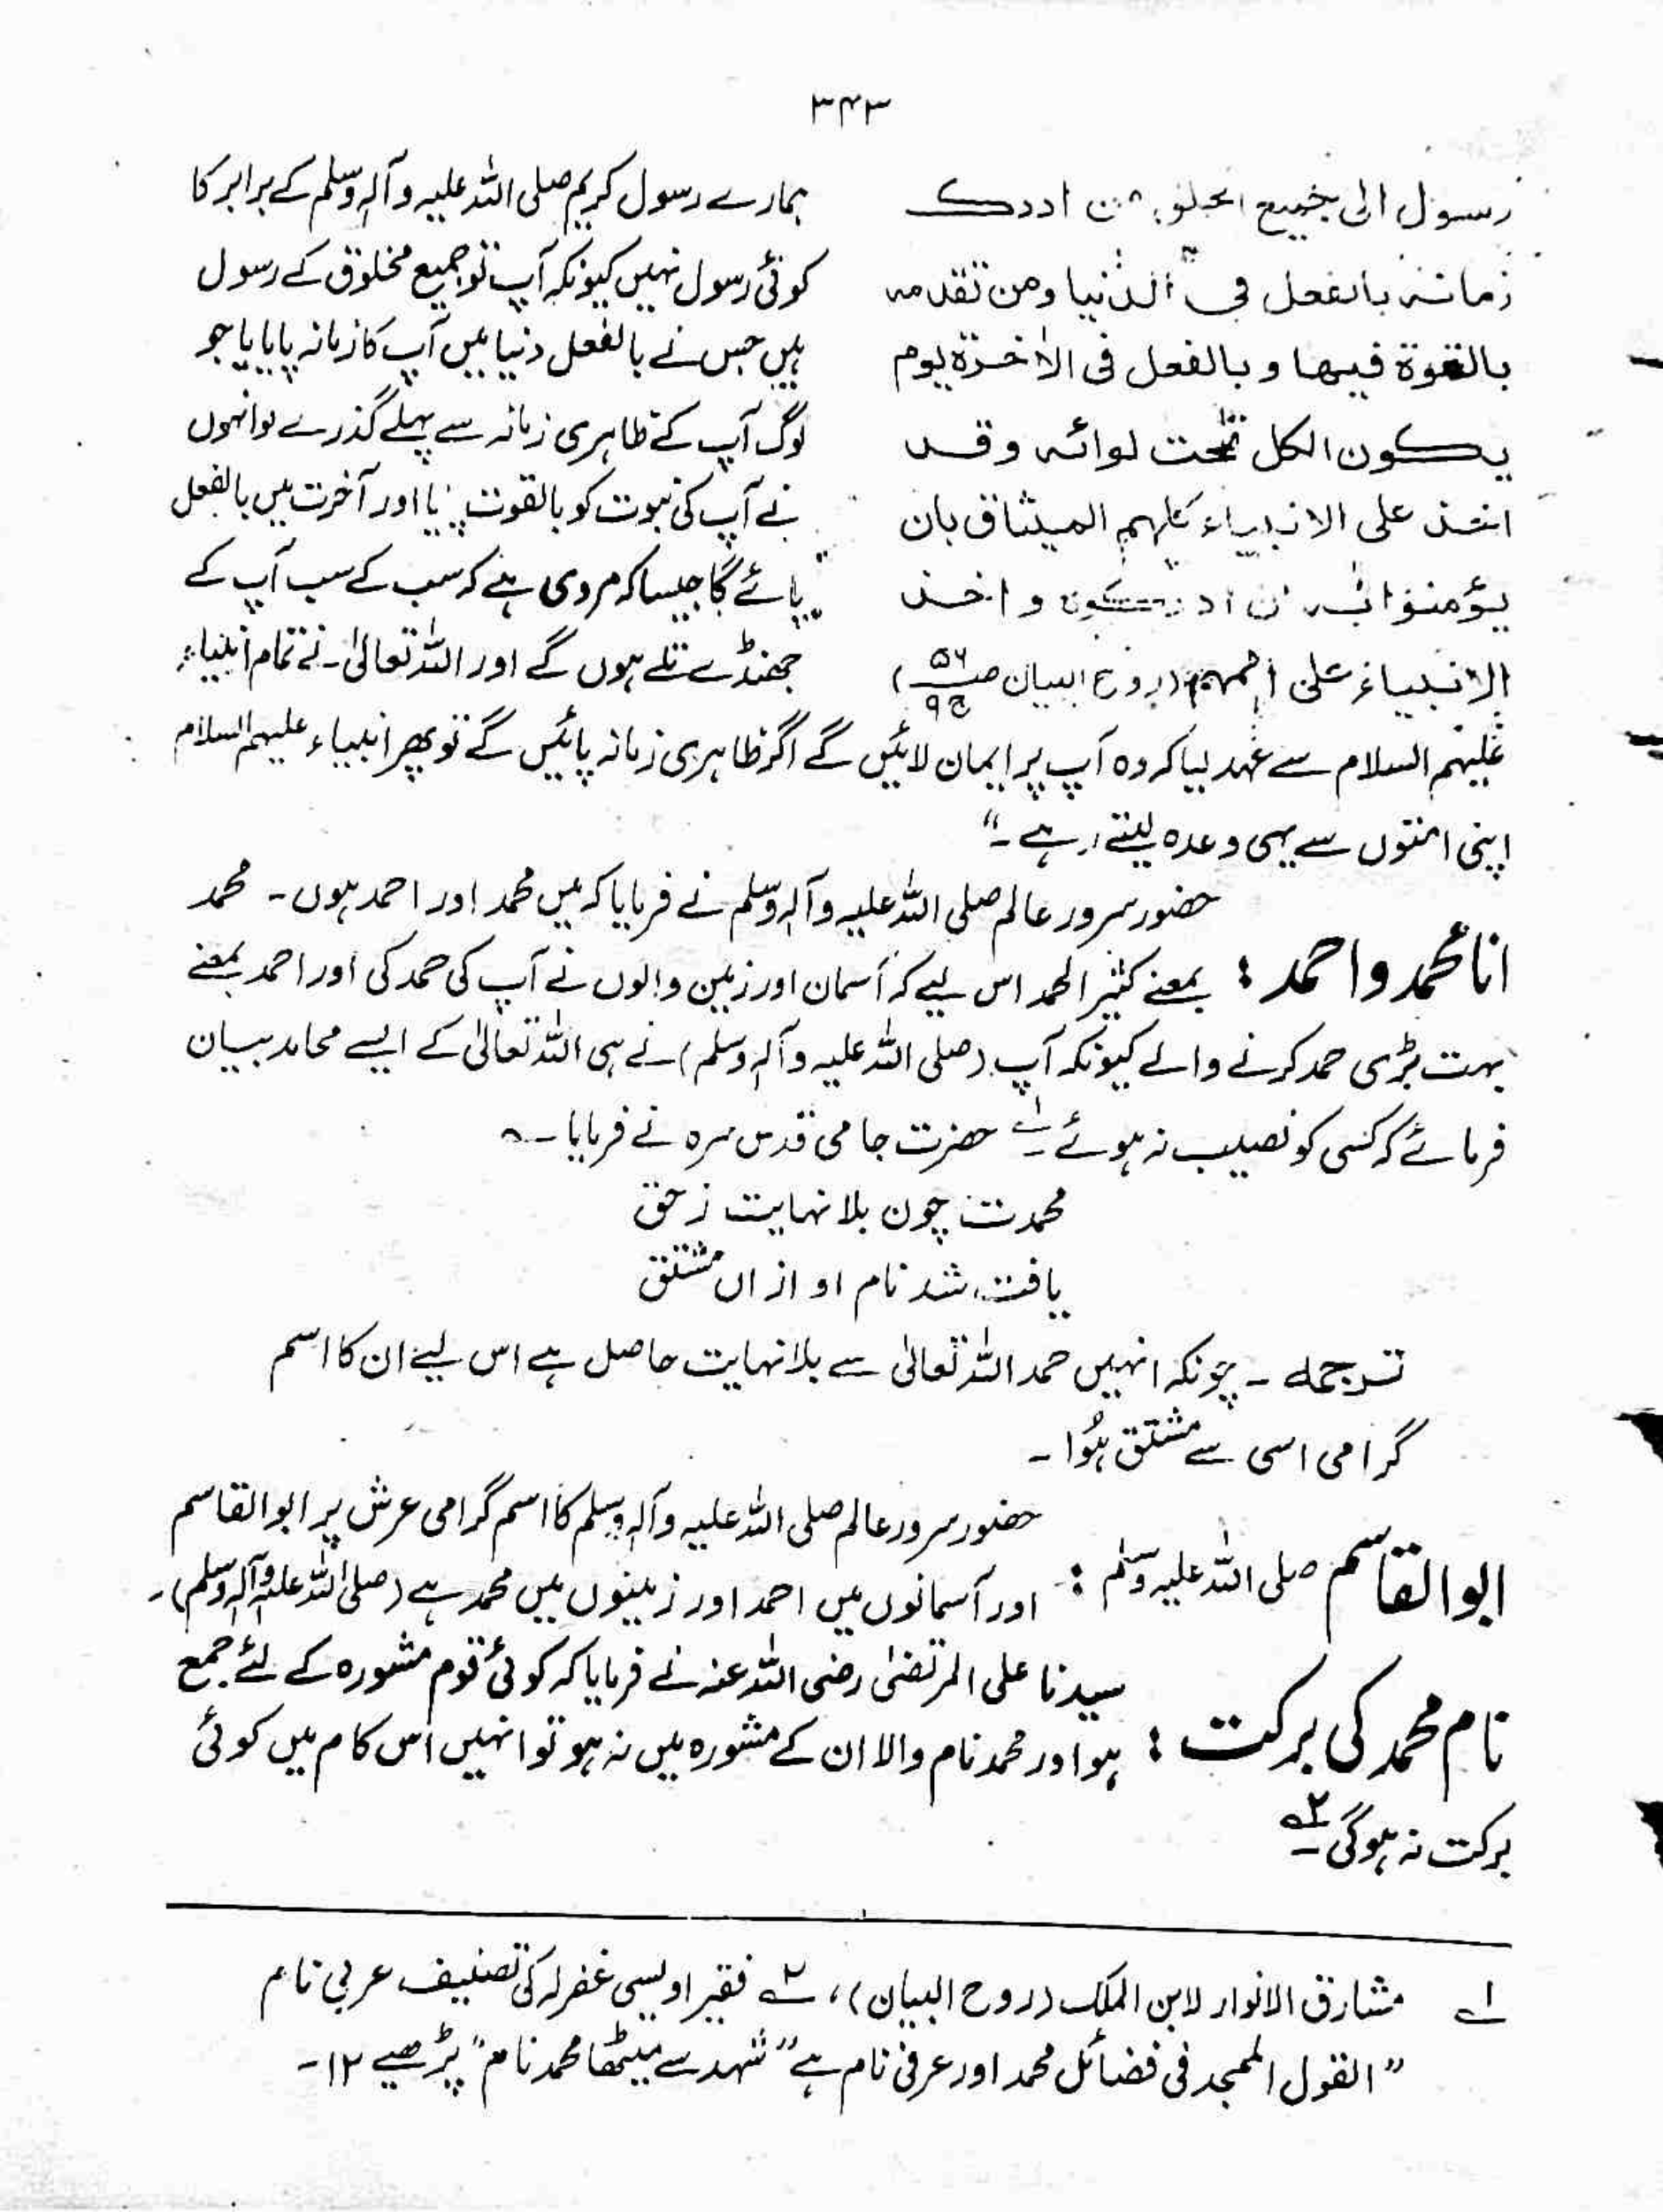 ۳۴۳
رسول الی جمیع الخلق من ادرک
زمانہ بالفعل فی الدنیا ومن تقدمہ
بالقوۃ فیھا و بالفعل فی الاٰخرۃ یوم
یکون الکل تحت لوائہ وقد
اخذ علی الانبیاء کلہم المیثاق بان
یؤمنوا بہ ان ادرکوہ و اخذ
الانبیاء علی اممہم (روح البیان ص۵۶ ج۹)
ہمارے رسول کریم صلی اللہ علیہ وآلہٖ وسلم کے برابر کا
کوئی رسول نہیں کیونکہ آپ تو جمیع مخلوق کے رسول
ہیں جس نے بالفعل دنیا میں آپ کا زمانہ پایا یا جو
لوگ آپ کے ظاہری زمانہ سے پہلے گذرے تو انہوں
نے آپ کی نبوت کو بالقوت پایا اور آخرت میں بالفعل
پائے گا جیسا کہ مروی ہے کہ سب کے سب آپ کے
جھنڈے تلے ہوں گے اور اللہ تعالیٰ نے تمام انبیاء
علیہم السلام سے عہد لیا کہ وہ آپ پر ایمان لائیں گے اگر ظاہری زمانہ پائیں گے تو پھر انبیاء علیہم السلام
اپنی امتوں سے یہی وعدہ لیتے رہے۔“
حضور سرور عالم صلی اللہ علیہ وآلہٖ وسلم نے فرمایا کہ میں محمد اور احمد ہوں۔ محمد
انا محمد و احمد : بمعنے کثیر الحمد اس لیے کہ آسمان اور زمین والوں نے آپ کی حمد کی اور احمد بمعنے
بہت بڑی حمد کرنے والے کیونکہ آپ (صلی اللہ علیہ وآلہٖ وسلم) نے ہی اللہ تعالیٰ کے ایسے محامد بیان
فرمائے کہ کسی کو نصیب نہ ہوئے۔ ۱؎ حضرت جامی قدس سرہ نے فرمایا ؎
محمدت چون بلا نہایت ز حق
یافت شد نام او ازاں مشتق
ترجمہ ۔ چونکہ انہیں حمد اللہ تعالیٰ سے بلا نہایت حاصل ہے اس لیے ان کا اسم
گرامی اسی سے مشتق ہُوا۔
حضور سرور عالم صلی اللہ علیہ وآلہٖ وسلم کا اسم گرامی عرش پر ابوالقاسم
ابوالقاسم صلی اللہ علیہ وسلم : اور آسمانوں میں احمد اور زمینوں میں محمد ہے (صلی اللہ علیہ وآلہٖ وسلم)۔
سیدنا علی المرتضیٰ رضی اللہ عنہ نے فرمایا کہ کوئی قوم مشورہ کے لئے جمع
نام محمد کی برکت : ہو اور محمد نام والا ان کے مشورہ میں نہ ہو تو انہیں اس کام میں کوئی
برکت نہ ہوگی۔ ۲؎
۱؎ مشارق الانوار لابن الملک (روح البیان) ، ۲؎ فقیر اویسی غفرلہ کی تصنیف عربی نام
”القول الممجد فی فضائل محمد اور عرفی نام ہے ”شہد سے میٹھا محمد نام“ پڑھیے ۱۲۔